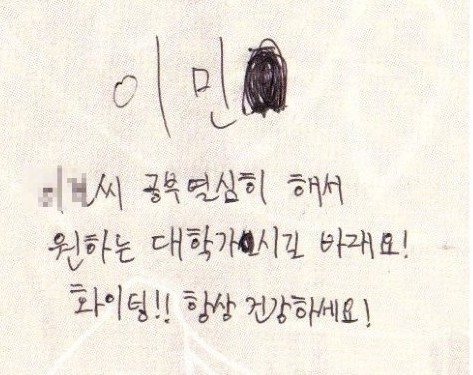 이민
씨 공부열심히 해서
원하는 대학가시길 바래요!
화이팅!! 항상 건강하세요!